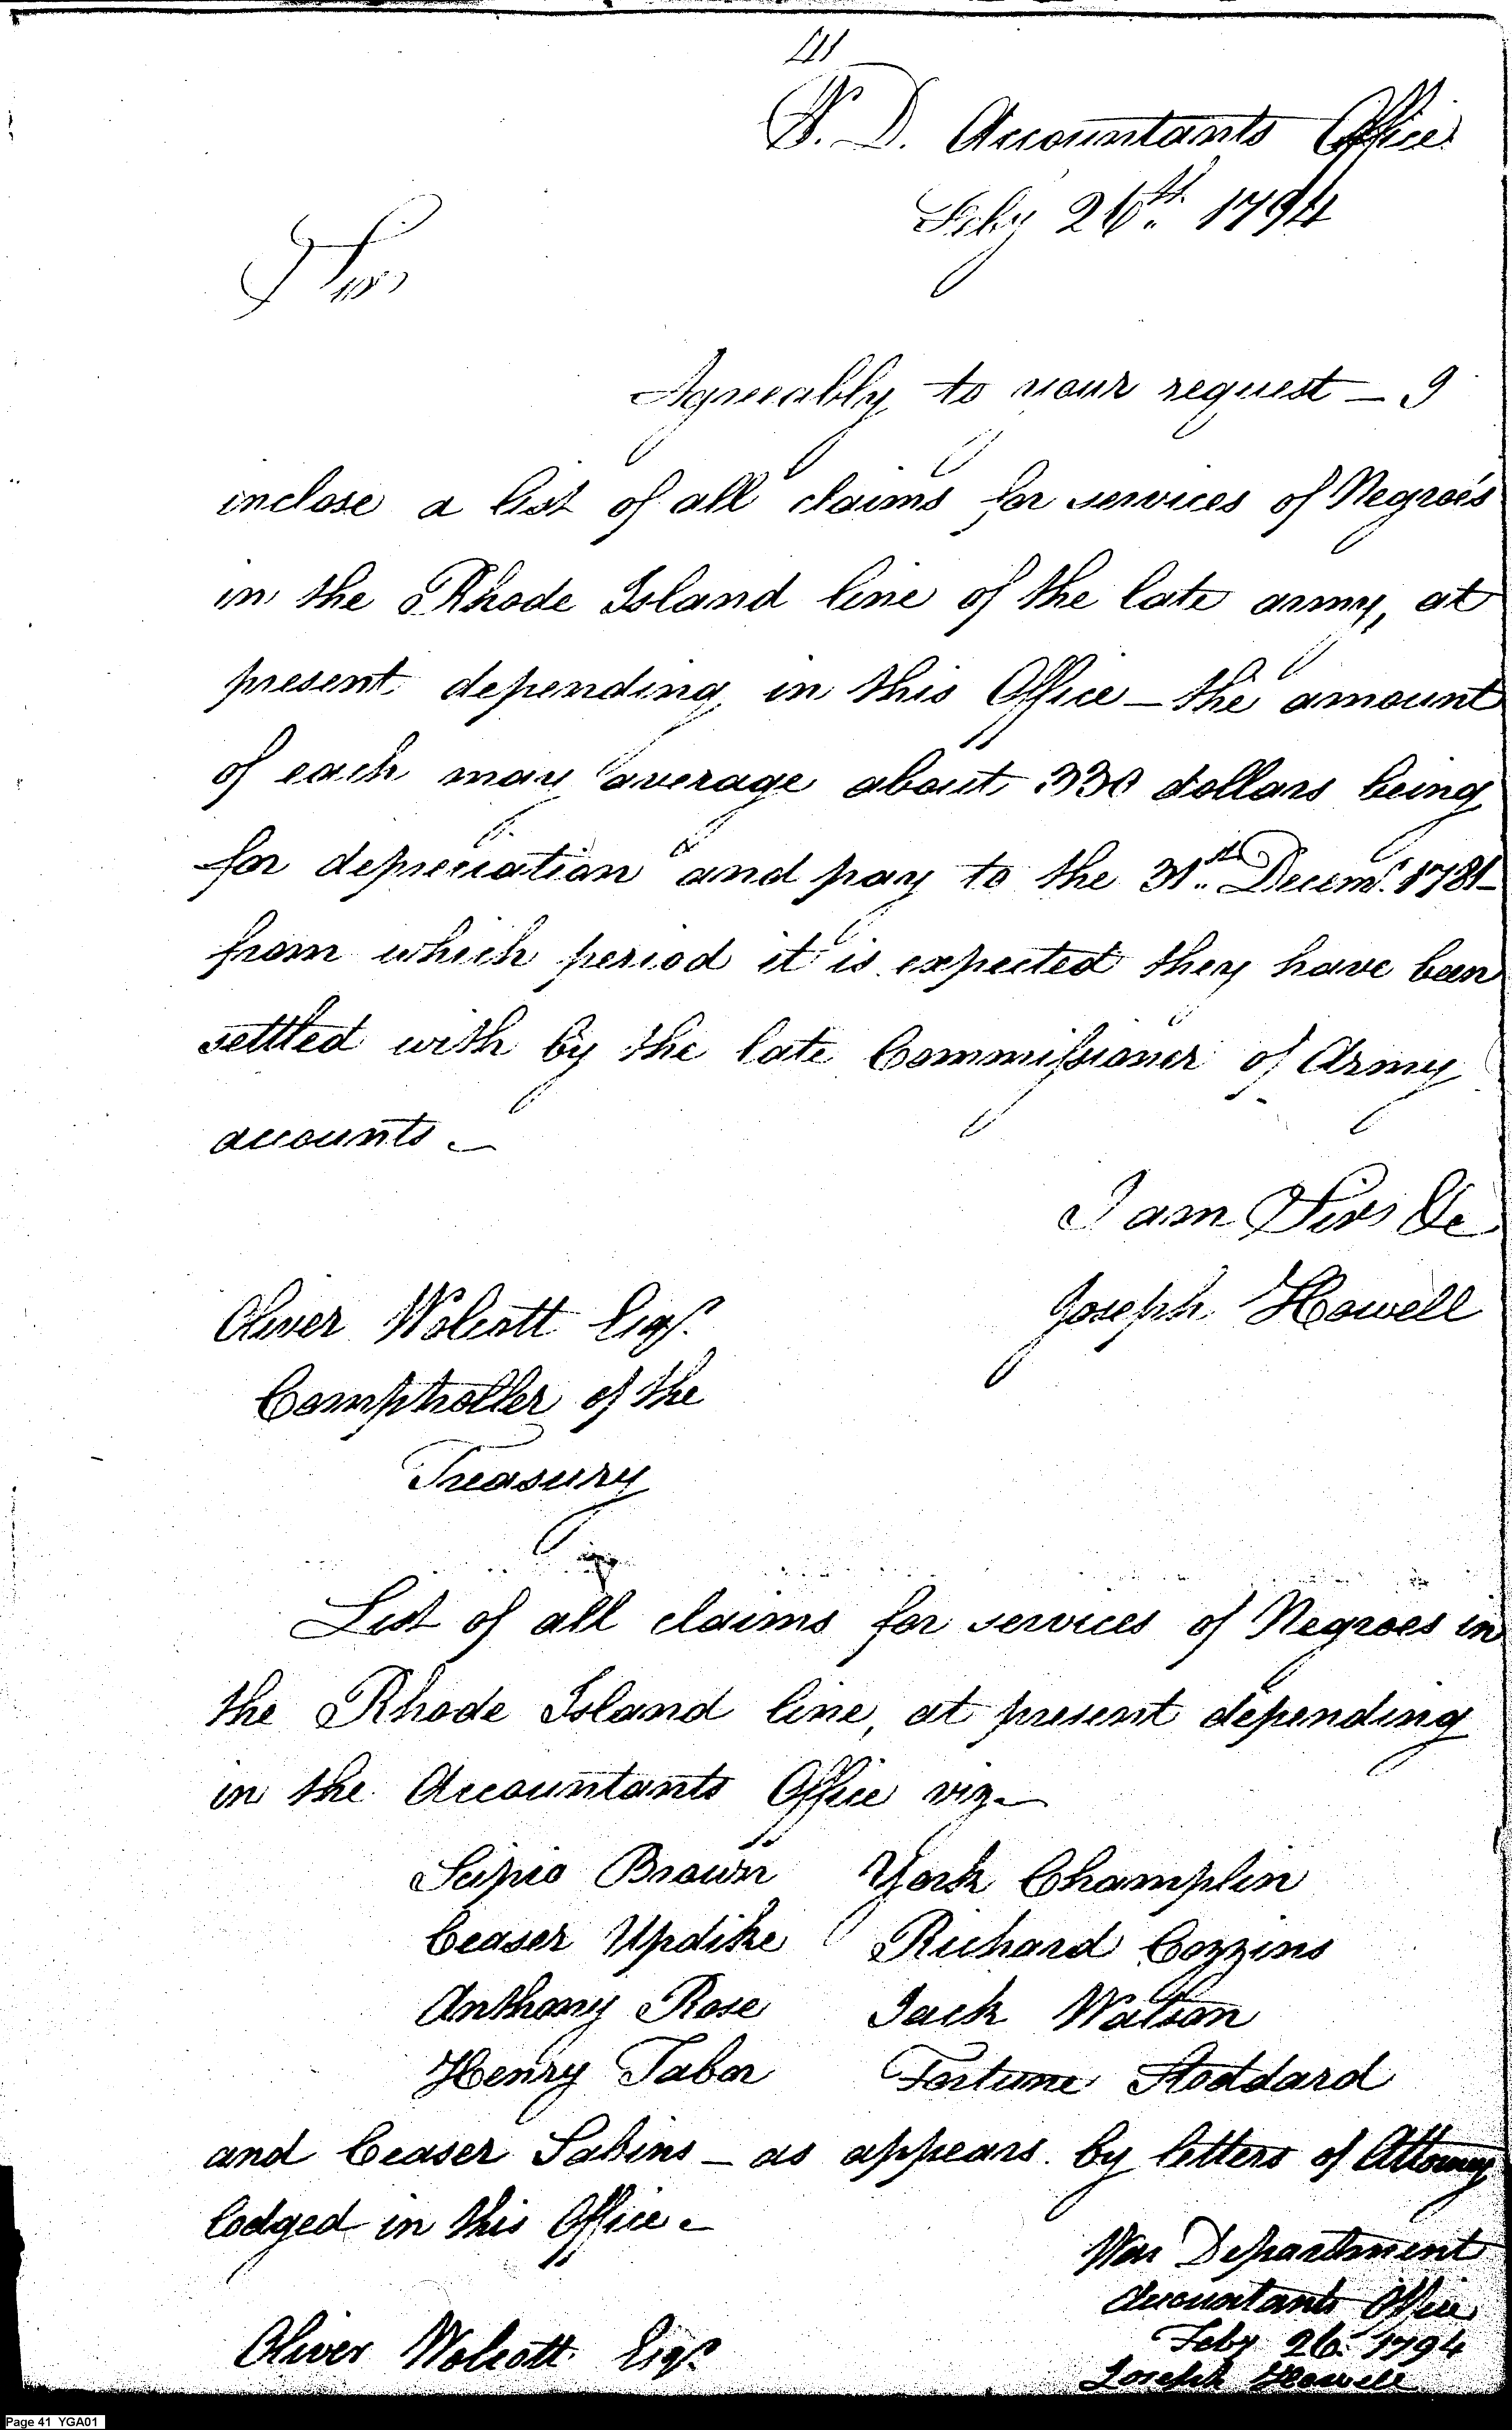 41
W. D. Accountants Office
Feby 26th. 1794
Sir
Agreeably to your request _ I
inclose a list of all claims for services of Negroe's
in the Rhode Island line of the late army, at
present depending in this Office _ the amount
of each may average about 330 dollars being
for depreciation and pay to the 31st. Decemr. 1781_
from which period it is expected they have been
settled with by the late Commissioner of Army
accounts _
I am Sir &c
Joseph Howell
Oliver Wolcott Esqr.
Comptroller of the
Treasury
List of all claims for services of Negroes in
the Rhode Island line, at present depending
in the Accountants Office viz_
Scipio Brown York Champlin
Ceaser Updike Richard Cozzins
Anthony Rose Jack Watson
Henry Tabor Fortune Stoddard
and Ceaser Sabins _ as appears by letters of Attorney
lodged in this Office _
War Department
Accountants Office
Feby 26. 1794
Joseph Howell
Oliver Wolcott Esqr.
Page 41 YGA01